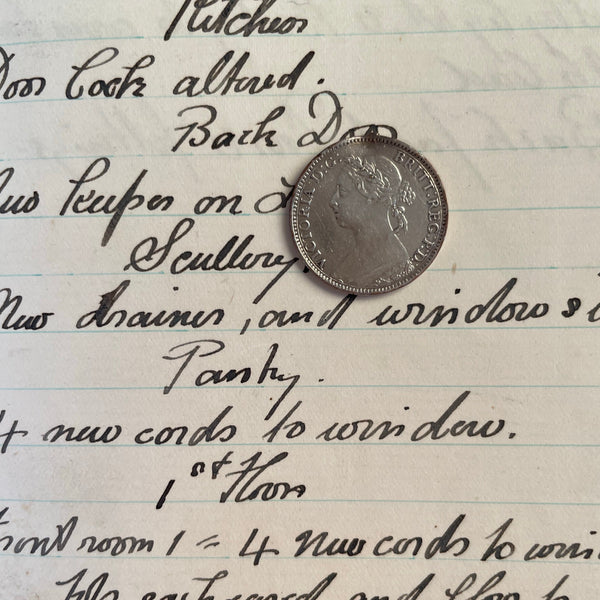 Kitchen
Door lock altered.
Back Door
New keeper on
Scullery.
New drainer, and window s
Pantry.
4 new cords to window.
1st Floor
Front room 1 = 4 New cords to win
and floor to
VICTORIA D:G: BRITT:REG:F:D: